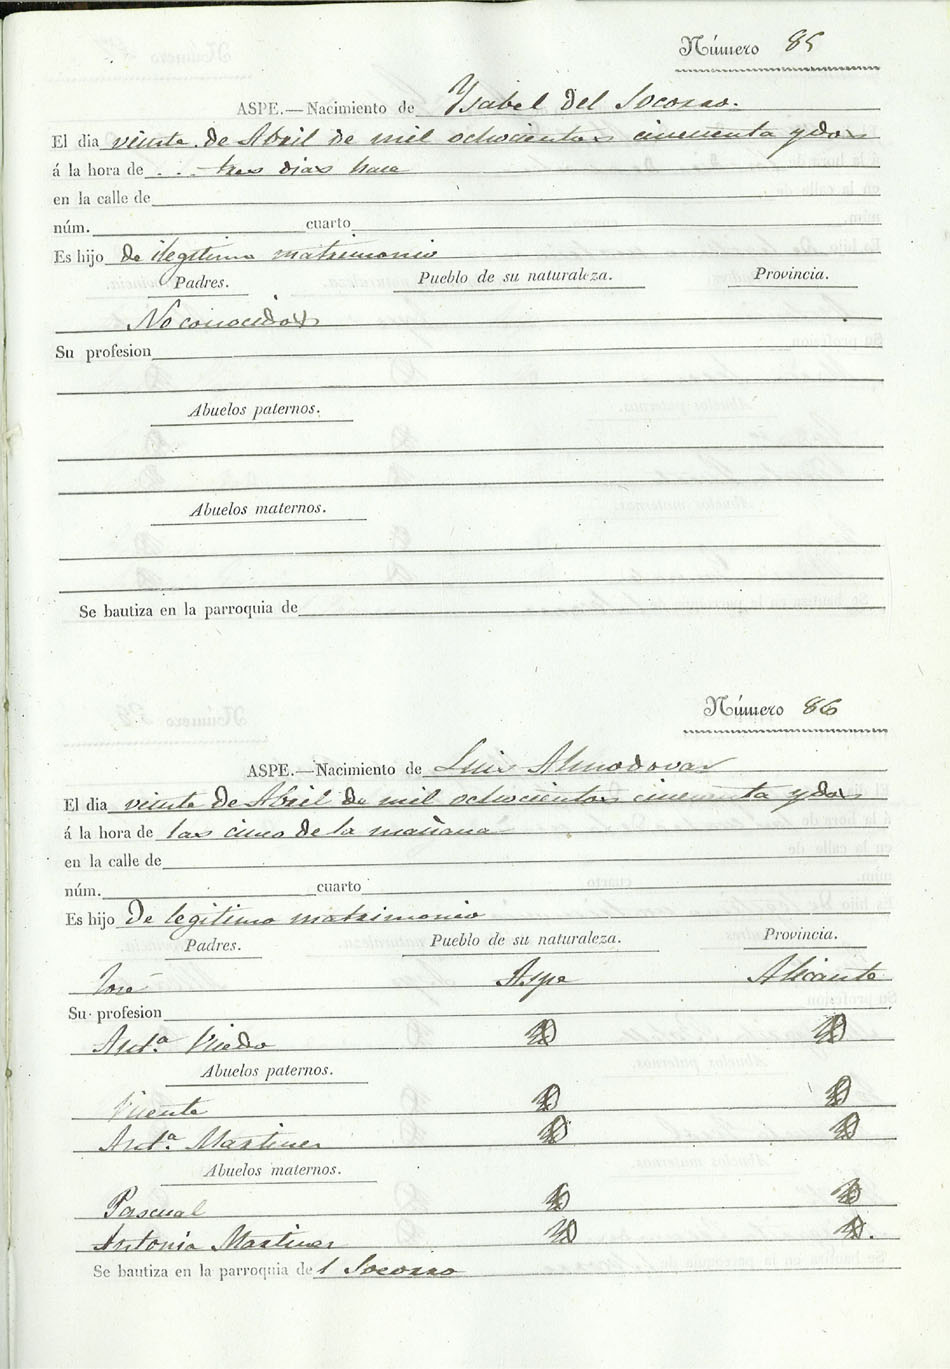 Número 85
ASPE.—Nacimiento de Ysabel del Socorro.
El dia veinte de Abril de mil ochocientos cincuenta y dos
á la hora de ... tres dias hace
en la calle de
núm. cuarto
Es hijo de ilegitimo matrimonio
Padres. Pueblo de su naturaleza. Provincia.
No conocidos
Su profesion
Abuelos paternos.
Abuelos maternos.
Se bautiza en la parroquia de
Número 86
ASPE.—Nacimiento de Luis Almodovar
El dia veinte de Abril de mil ochocientos cincuenta y dos
á la hora de las cinco de la mañana
en la calle de
núm. cuarto
Es hijo de legitimo matrimonio
Padres. Pueblo de su naturaleza. Provincia.
José Aspe Alicante
Su profesion
Antª.
Abuelos paternos.
Vicente
Antª. Martinez
Abuelos maternos.
Pascual
Antonia Martinez
Se bautiza en la parroquia del Socorro